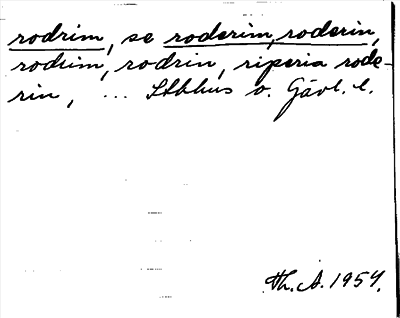 rodrim, se roderim, roderin,
rodrim, rodrin, riperia rode-
rin, ... Stbhus o. Gävl. l.
Th. A. 1954.